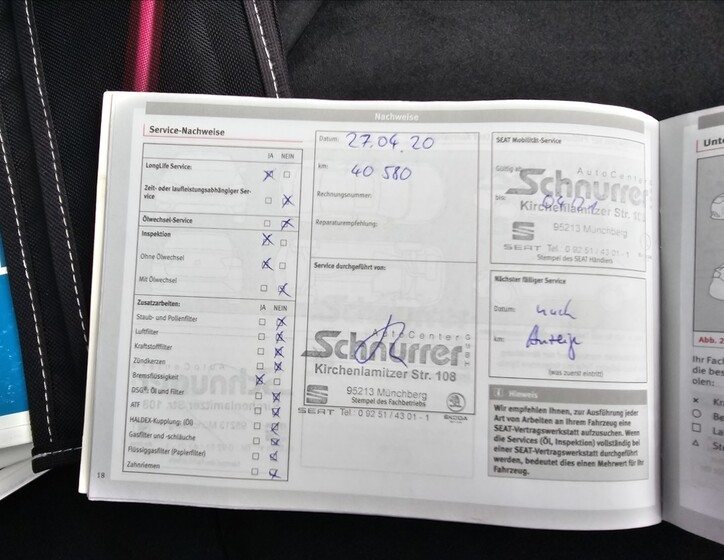 Nachweise
Service-Nachweise
JA NEIN
LongLife Service:
Zeit- oder laufleistungsabhängiger Ser-
vice
Ölwechsel-Service
Inspektion
Ohne Ölwechsel
Mit Ölwechsel
Zusatzarbeiten: JA NEIN
Staub- und Pollenfilter
Luftfilter
Kraftstofffilter
Zündkerzen
Bremsflüssigkeit
DSG®: Öl und Filter
ATF
HALDEX-Kupplung: (Öl)
Gasfilter und -schläuche
Flüssiggasfilter (Papierfilter)
Zahnriemen
18
Datum: 27.04.20
km: 40 580
Rechnungsnummer:
Reparaturempfehlung:
Service durchgeführt von:
AutoCenter
Schnurrer
GmbH
Kirchenlamitzer Str. 108
95213 Münchberg
Stempel des Fachbetriebs
SEAT Tel.: 0 92 51 / 43 01 - 1 SKODA
SEAT Mobilität-Service
Gültig
AutoCenter
Schnurrer
bis: 04/21
Kirchenlamitzer Str. 10
95213 Münchberg
SEAT Tel.: 0 92 51 / 43 01 - 1
Stempel des SEAT Händlers
Nächster fälliger Service
Datum: nach
km: Anzeige
(was zuerst eintritt)
Hinweis
Wir empfehlen Ihnen, zur Ausführung jeder
Art von Arbeiten an Ihrem Fahrzeug eine
SEAT-Vertragswerkstatt aufzusuchen. Wenn
die Services (Öl, Inspektion) vollständig bei
einer SEAT-Vertragswerkstatt durchgeführt
werden, bedeutet dies einen Mehrwert für Ihr
Fahrzeug.
Abb. 2
Ihr Fac
die bes
olen: